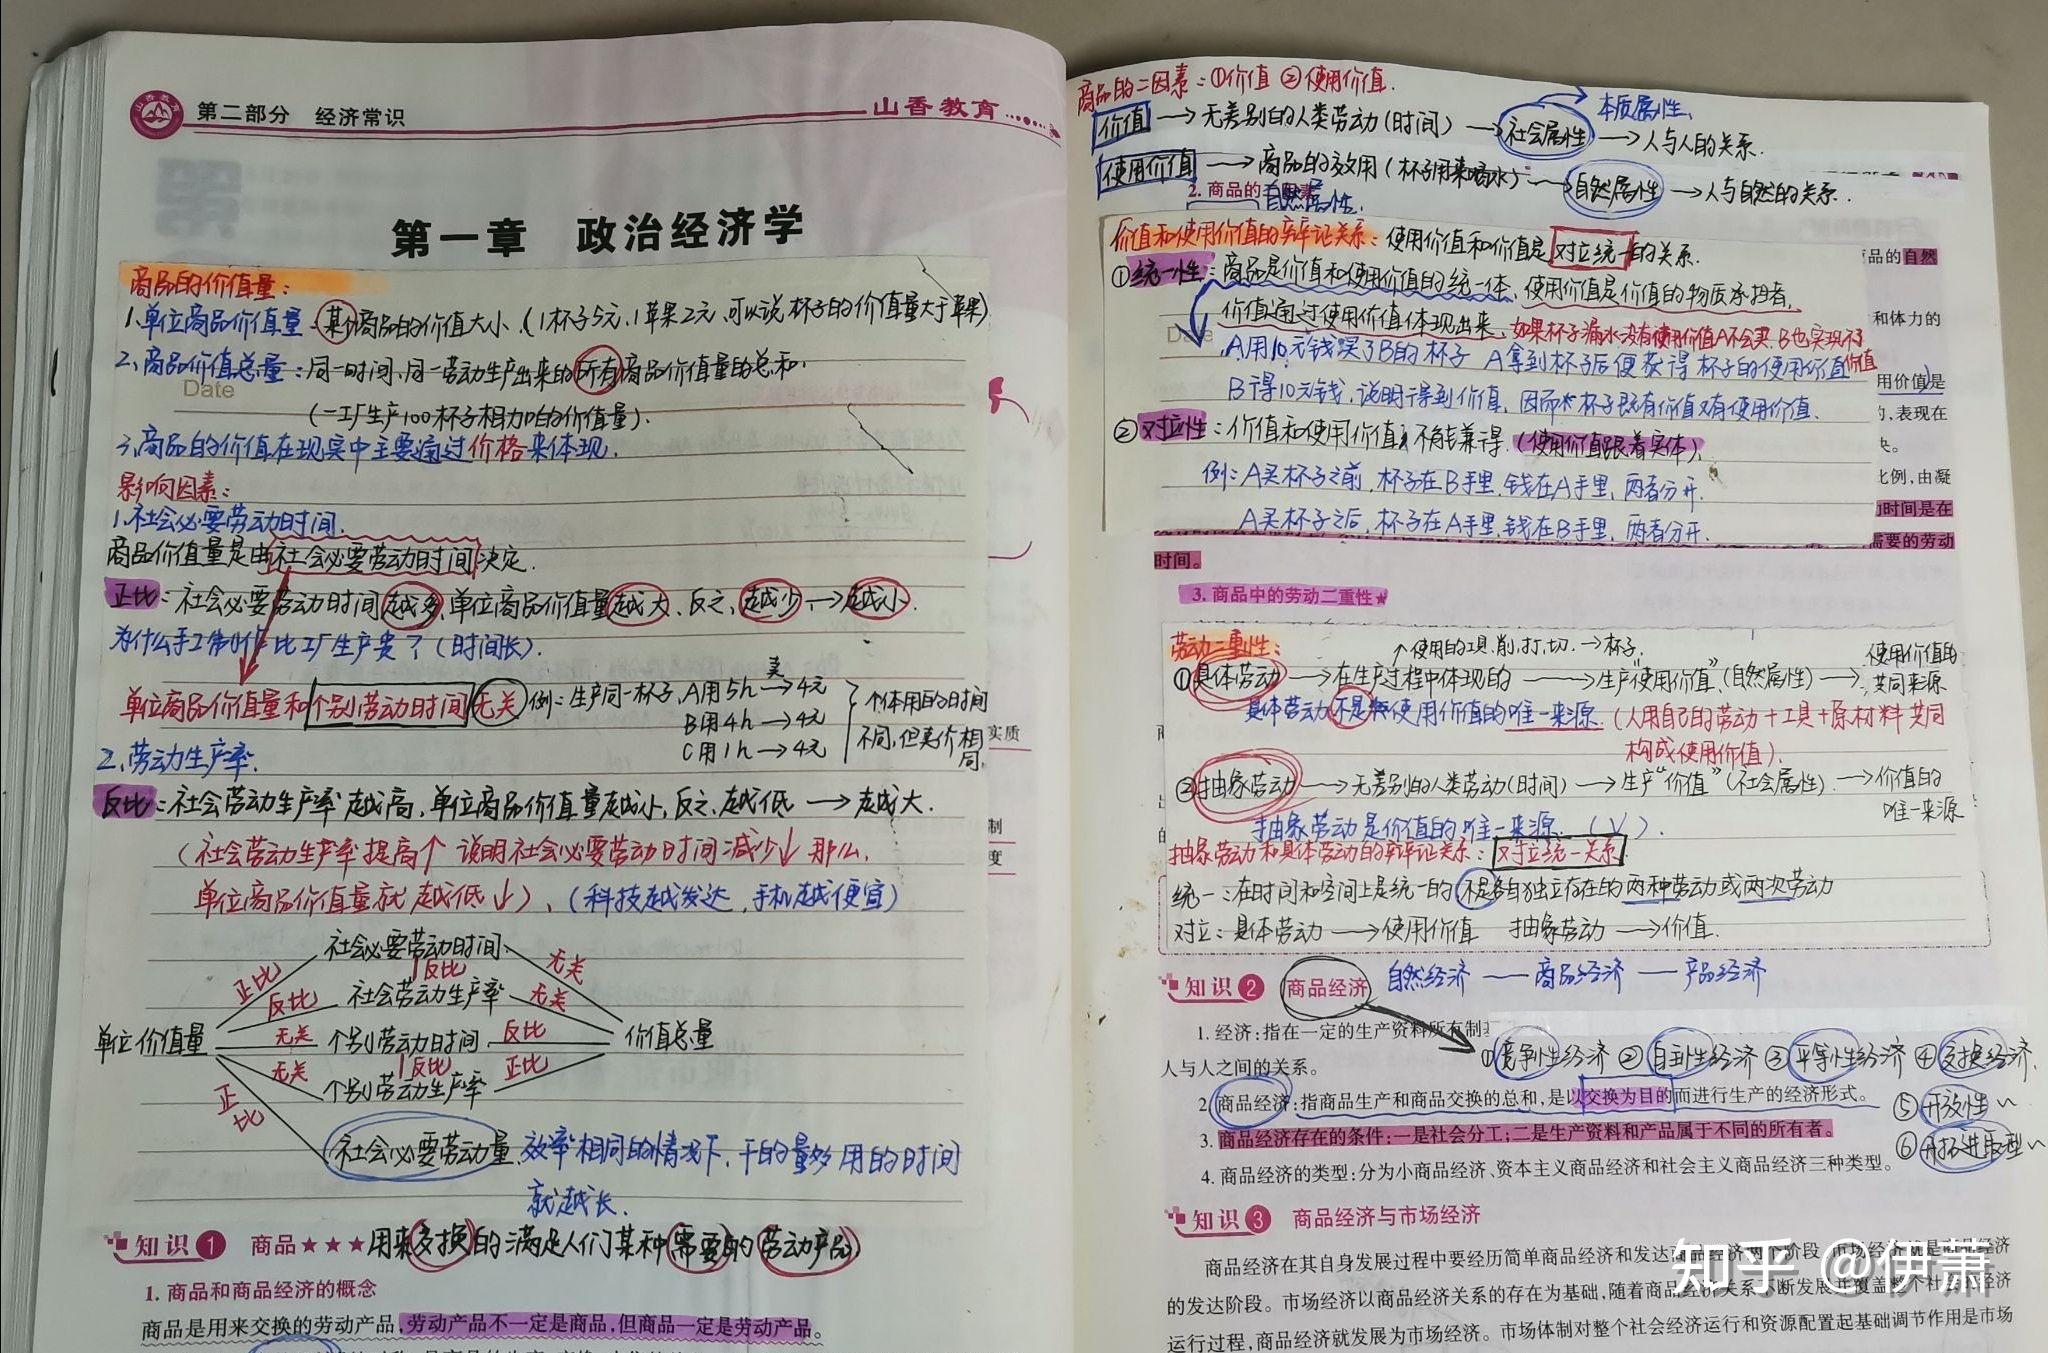 第二部分 经济常识
山香教育
第一章 政治经济学
商品的价值量：
1.单位商品价值量：某个商品的价值大小.(1杯子5元,1苹果2元,可以说杯子的价值量大于苹果)
2.商品价值总量：同一时间,同一劳动生产出来的所有商品价值量的总和.
Date
(一工厂生产100杯子相加的价值量).
3.商品的价值在现实中主要通过价格来体现.
影响因素：
1.社会必要劳动时间.
商品价值量是由社会必要劳动时间决定.
正比：社会必要劳动时间越多,单位商品价值量越大、反之、越少→越小.
为什么手工制作比工厂生产贵？(时间长).
单位商品价值量和个别劳动时间无关 例：生产同一杯子,A用5h 卖→4元
B用4h→4元
C用1h→4元
个体用的时间
不同,但卖价相
同.
2.劳动生产率.
反比：社会劳动生产率越高,单位商品价值量越小,反之,越低→越大.
(社会劳动生产率提高↑ 说明社会必要劳动时间减少↓ 那么.
单位商品价值量就越低↓)、(科技越发达,手机越便宜)
社会必要劳动时间
正比 反比 无关
反比 社会劳动生产率 无关
单位价值量 无关 个别劳动时间 反比 价值总量
无关 反比 正比
个别劳动生产率
正比
社会必要劳动量.效率相同的情况下,干的量多用的时间
就越长.
实质
制
度
知识1 商品★★★用来交换的满足人们某种需要的劳动产品
1. 商品和商品经济的概念
商品是用来交换的劳动产品,劳动产品不一定是商品,但商品一定是劳动产品。
商品的二因素：①价值 ②使用价值.
本质属性.
价值→无差别的人类劳动(时间)→社会属性→人与人的关系.
使用价值→商品的效用(杯子用来喝水)→自然属性→人与自然的关系.
2. 商品的二因素
自然属性.
价值和使用价值的辩证关系：使用价值和价值是对立统一的关系.
①统一性：商品是价值和使用价值的统一体,使用价值是价值的物质承担者,
价值通过使用价值体现出来.如果杯子漏水没有使用价值A不会买,B也实现不了
价值
A用10元钱买了B的杯子 A拿到杯子后便获得杯子的使用价值
B得10元钱,说明得到价值,因而杯子既有价值又有使用价值.
②对立性：价值和使用价值不能兼得.(使用价值跟着实体)
例：A买杯子之前,杯子在B手里,钱在A手里,两者分开.
A买杯子之后,杯子在A手里,钱在B手里,两者分开.
品的自然
和体力的
用价值)是
,表现在
比例,由凝
动时间是在
需要的劳动
时间。
3. 商品中的劳动二重性★
劳动二重性：
↑使用的工具.削,打,切.→杯子.
①具体劳动→在生产过程中体现的→生产“使用价值”(自然属性)→使用价值的
共同来源
具体劳动不是使用价值的唯一来源.(人用自己的劳动+工具+原材料共同
构成使用价值).
②抽象劳动→无差别的人类劳动(时间)→生产“价值”(社会属性).→价值的
唯一来源
抽象劳动是价值的唯一来源.(√).
抽象劳动和具体劳动的辩证关系：对立统一关系
统一：在时间和空间上是统一的,不是各自独立存在的两种劳动或两次劳动
对立：具体劳动→使用价值 抽象劳动→价值.
知识2 商品经济 自然经济—商品经济—产品经济
1. 经济:指在一定的生产资料所有制
人与人之间的关系。
①竞争性经济 ②自主性经济 ③平等性经济 ④交换经济.
⑤开放性~
⑥开拓进取型~
2. 商品经济:指商品生产和商品交换的总和,是以交换为目的而进行生产的经济形式。
3. 商品经济存在的条件:一是社会分工;二是生产资料和产品属于不同的所有者。
4. 商品经济的类型:分为小商品经济、资本主义商品经济和社会主义商品经济三种类型。
知识3 商品经济与市场经济
商品经济在其自身发展过程中要经历简单商品经济和发达商品经济两个阶段,市场经济就是商品经济
的发达阶段。市场经济以商品经济关系的存在为基础,随着商品经济关系不断发展并覆盖整个社会的经济
运行过程,商品经济就发展为市场经济。市场体制对整个社会经济运行和资源配置起基础调节作用是市场
知乎 @伊萧